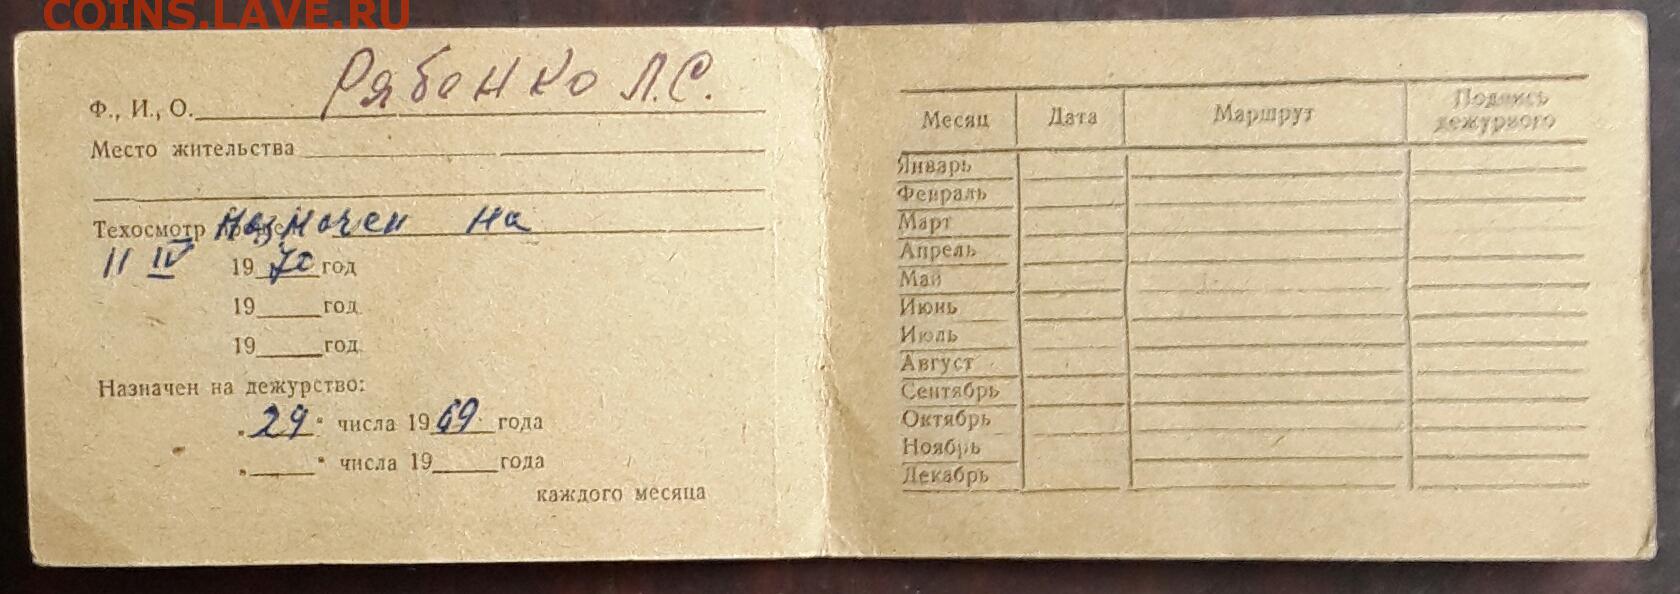 COINS.LAVE.RU
Рябенко Л.С.
Ф., И., О.
Место жительства
Техосмотр назначен на
11 IV 1970 год
19 год
19 год
Назначен на дежурство:
„29“ числа 1969 года
„ “ числа 19 года
каждого месяца
Месяц Дата Маршрут Подпись дежурного
Январь
Февраль
Март
Апрель
Май
Июнь
Июль
Август
Сентябрь
Октябрь
Ноябрь
Декабрь